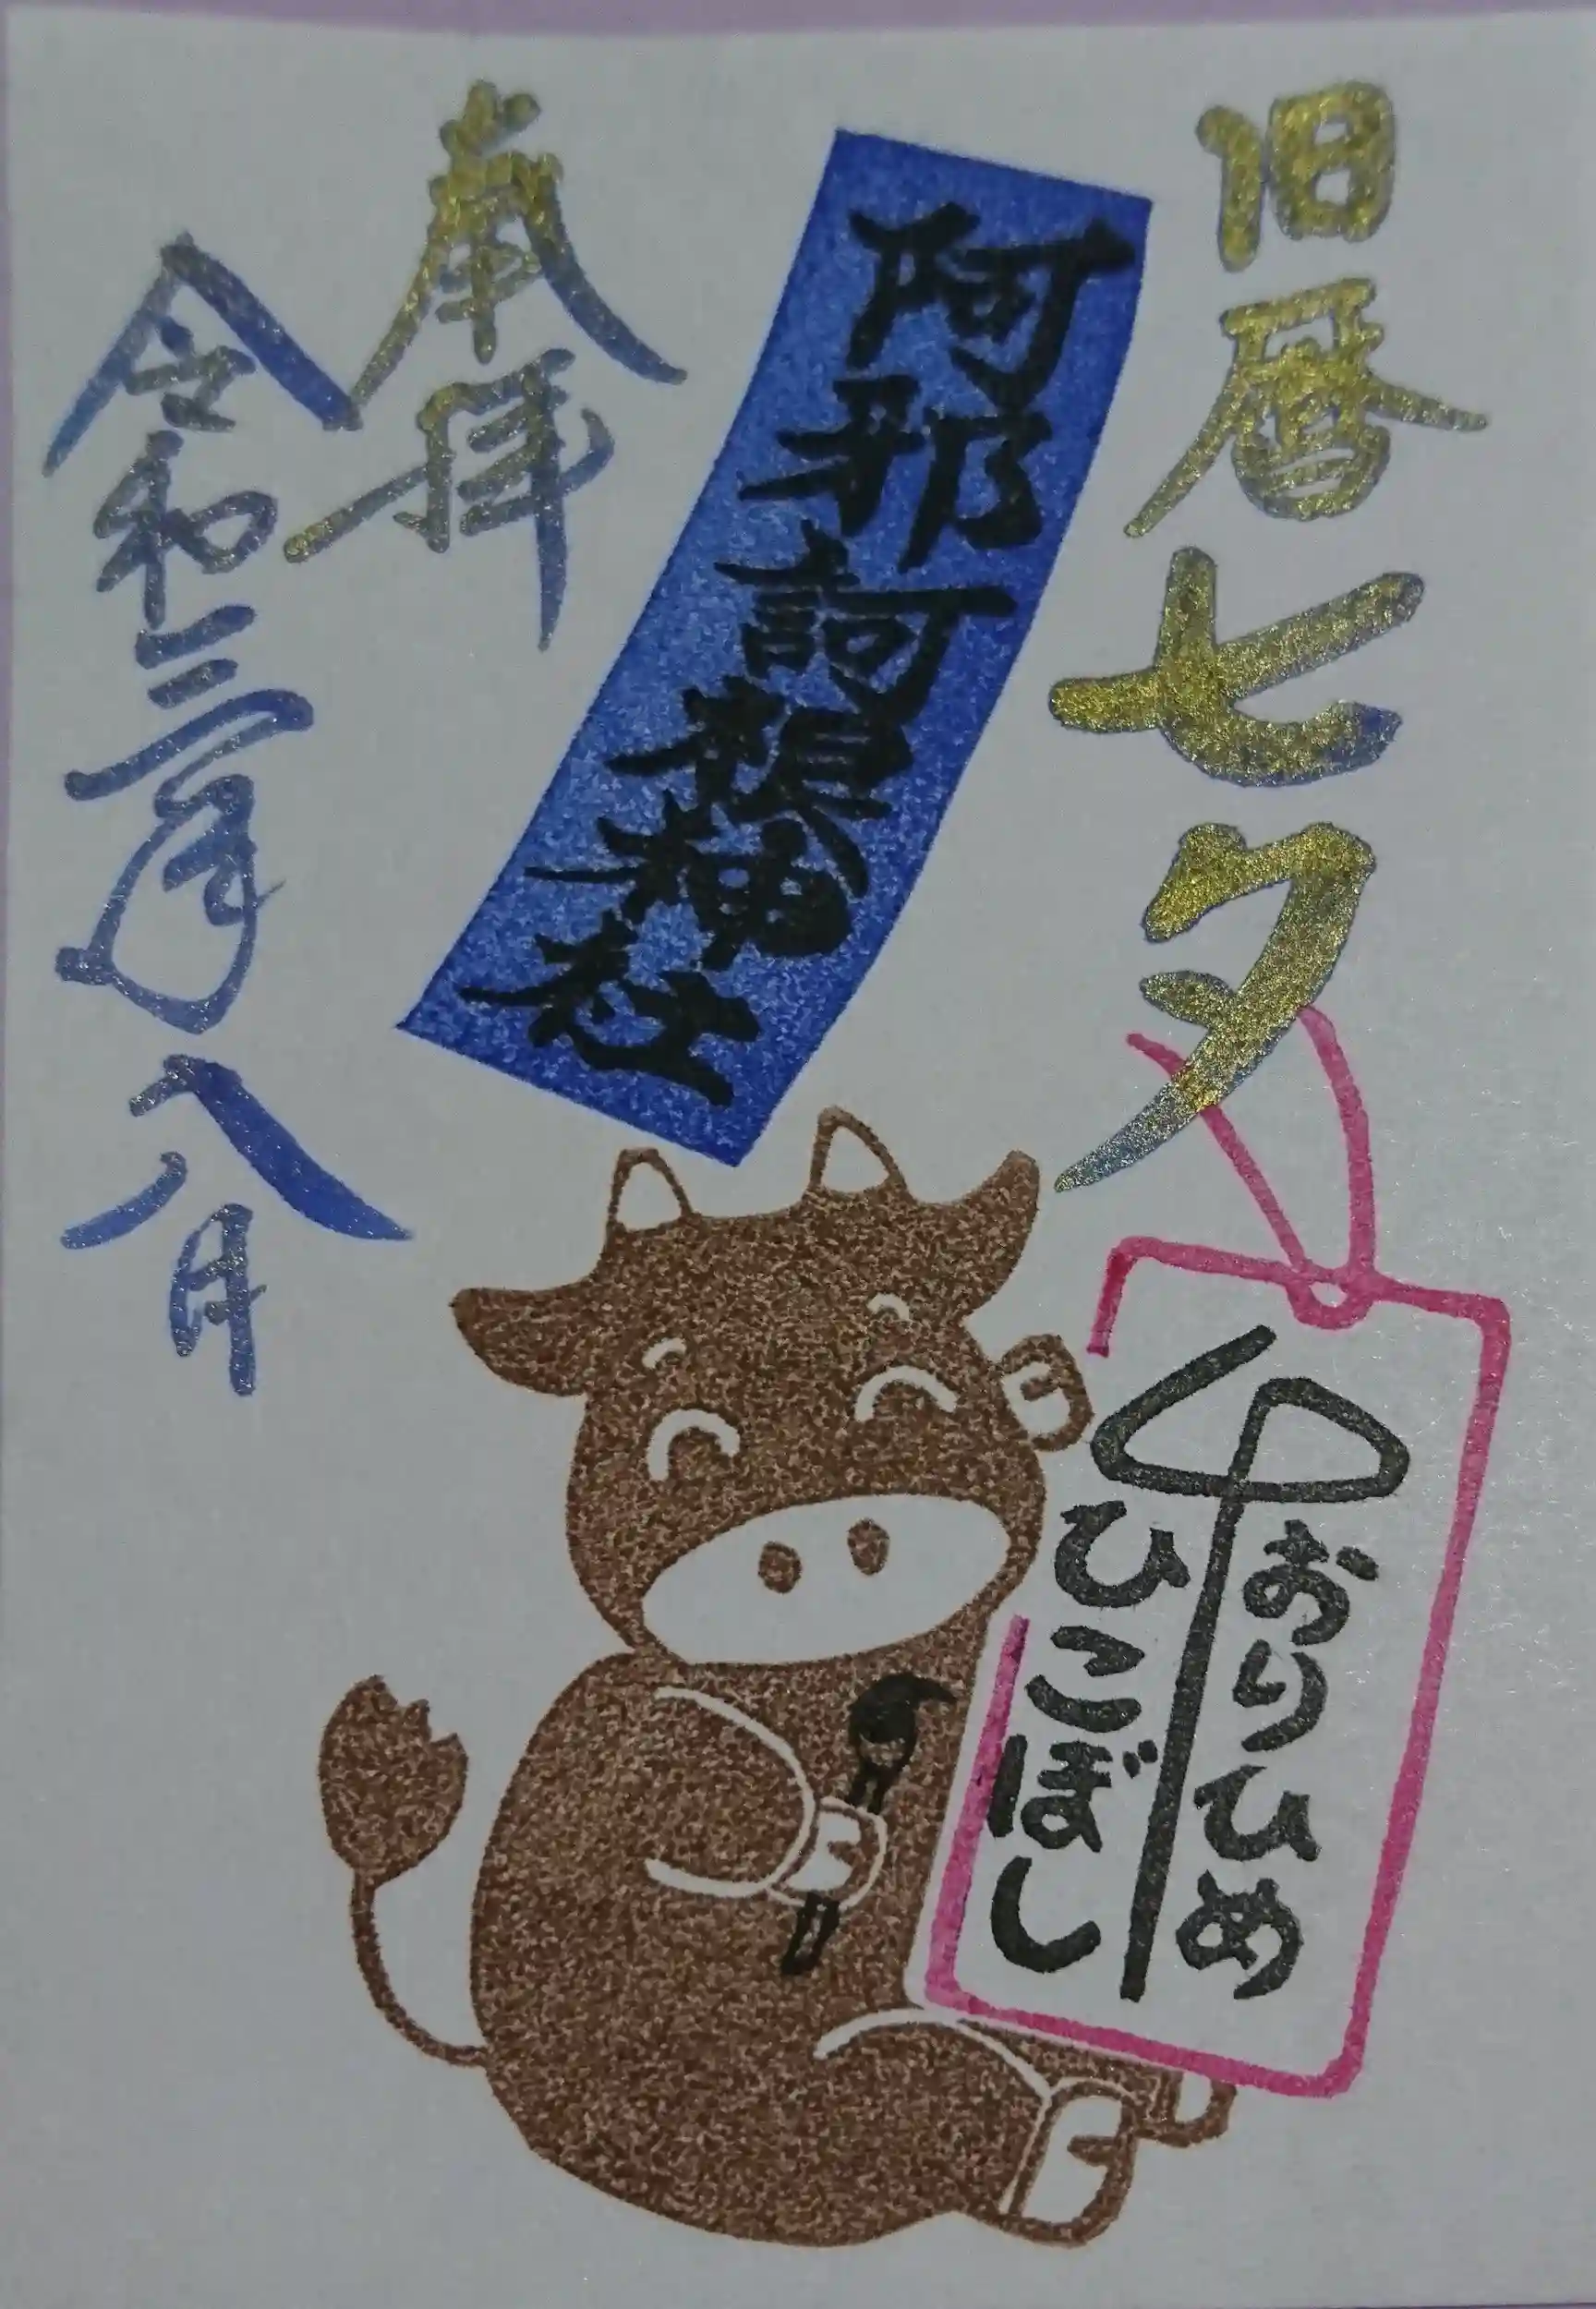 旧暦七夕
阿邪訶根神社
奉拝
令和三年八月
おりひめ
ひこぼし